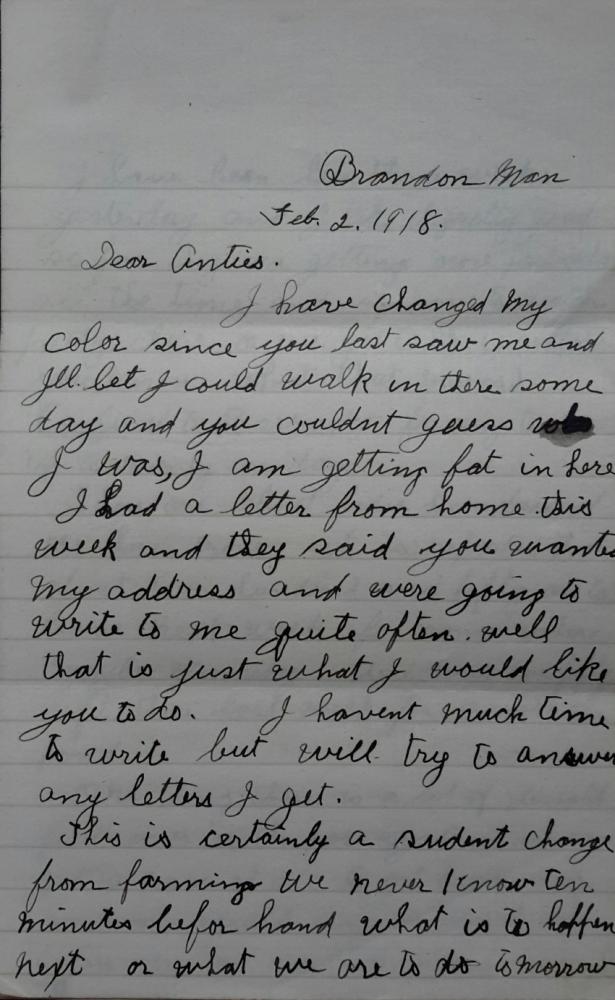 Brandon Man
Feb. 2. 1918.
Dear Anties.
I have changed my
color since you last saw me and
Ill bet I could walk in there some
day and you couldnt guess
I was, I am getting fat in here
I had a letter from home this
week and they said you wante
my address and were going to
write to me quite often. well
that is just what I would like
you to do. I havent much time
to write but will try to answer
any letters I get.
This is certainly a sudent change
from farming we never know ten
minutes befor hand what is to happen
next or what we are to do tomorrow